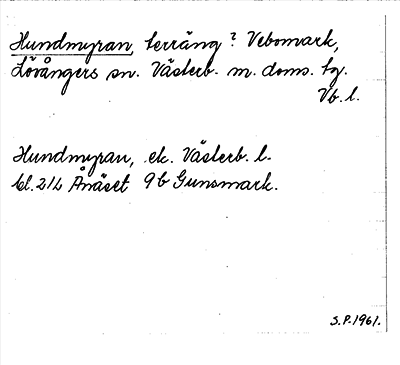 Hundmyran, terräng? Vebomark,
Lövångers sn. Västerb. m. doms. tg.
Vb. l.
Hundmyran, ek. Västerb. l.
bl. 212 Ånäset 9b Gunsmark.
S.P. 1961.